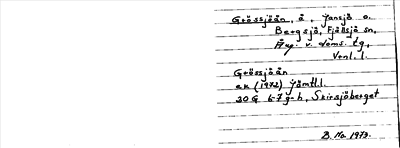 Grössjöån, å, Jansjö o.
Bergsjö, Fjällsjö sn,
Ång. v. doms. tg,
Vnl. l.
Grössjöån
ek (1972) Jämtl.l.
20G 6-7 g-h, Skirsjöberget
B. No. 1973.